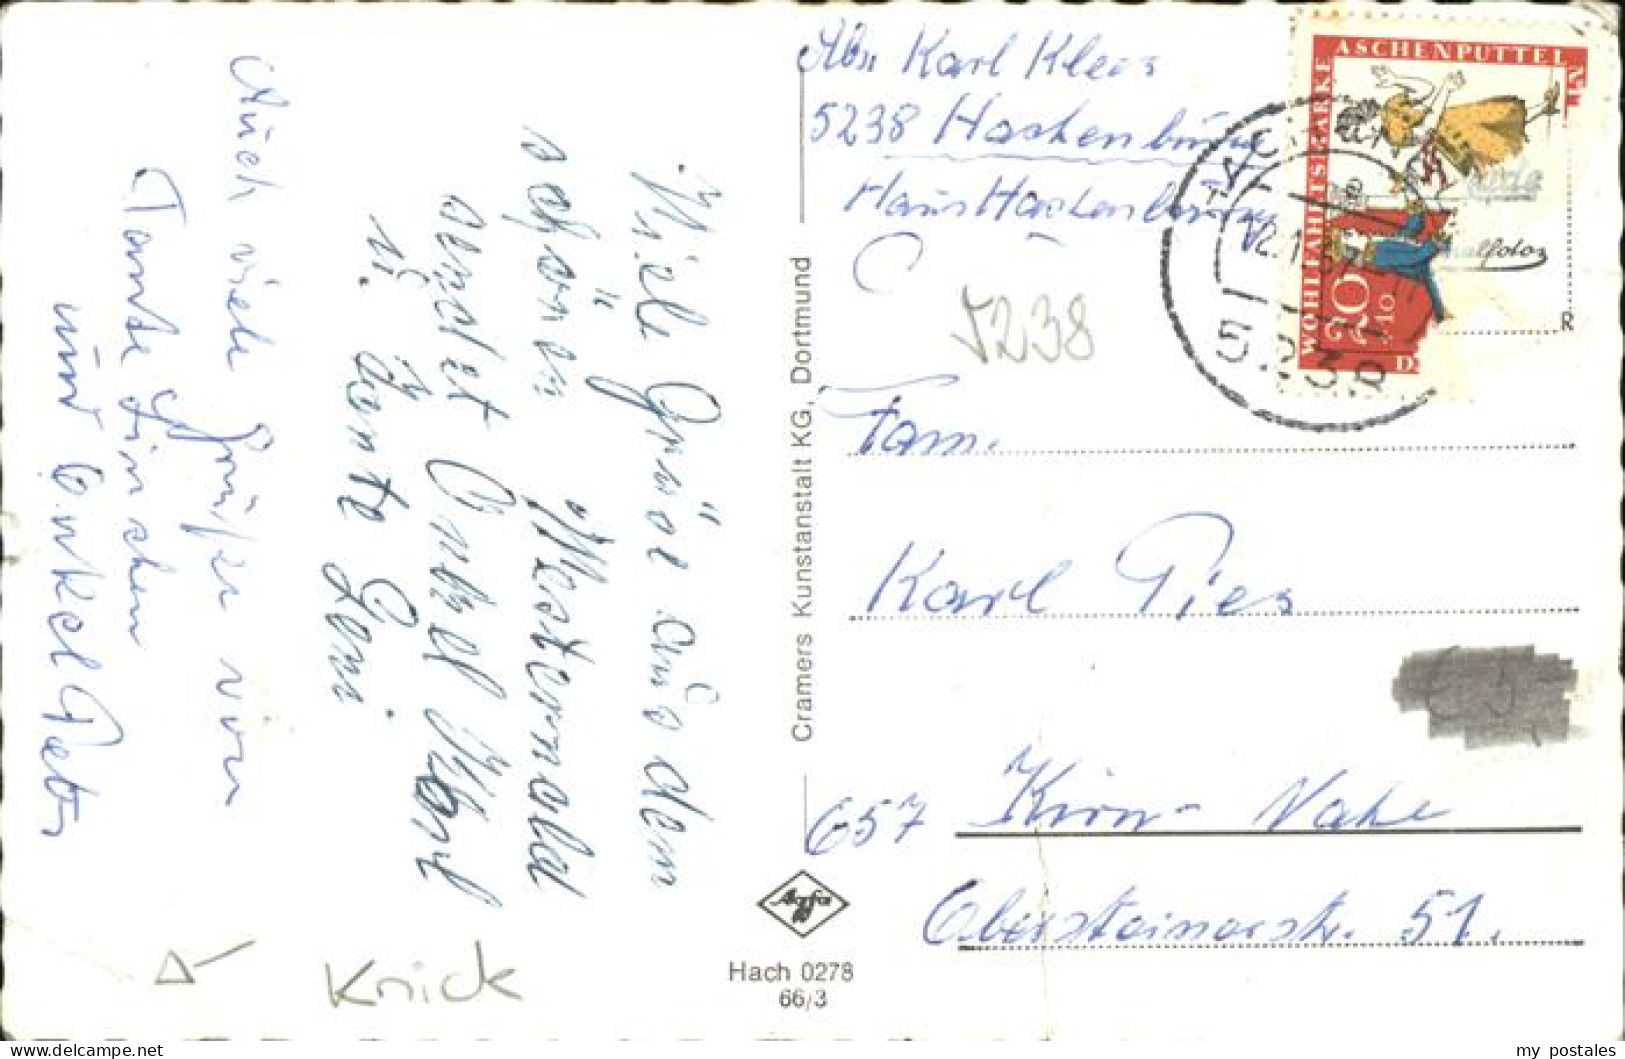 Viele Grüße aus dem
schönen Westerwald
sendet Onkel Karl
u. Tante Leni.
Auch viele Grüße von
Tante Linchen
und Onkel Peter
Karl Klees
5238 Hachenburg
Haus Hachenburg
5238
Fam.
Karl Pies
657 Kirn-Nahe
Obersteinerstr. 51.
Cramers Kunstanstalt KG, Dortmund
Agfa
Hach 0278
66/3
Knick
ASCHENPUTTEL
WOHLFAHRTSMARKE
20
+10
12.1.67
5238
R
my postales